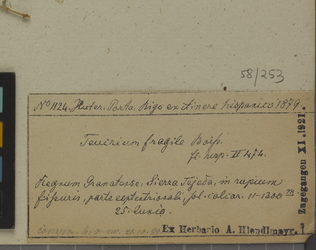 58/253
No 1124. Huter. Porta. Rigo ex itinere hispanico 1879.
Teucrium fragile Boiss.
fl. hisp. II 474.
Regnum Granatense. Sierra Tejeda, in rupium
fissuris, parte septentrionali, sol. calcar. 11-1300 m
25. Junio.
Ex Herbario A. Hiendlmayr.
Zugegangen XI. 1921